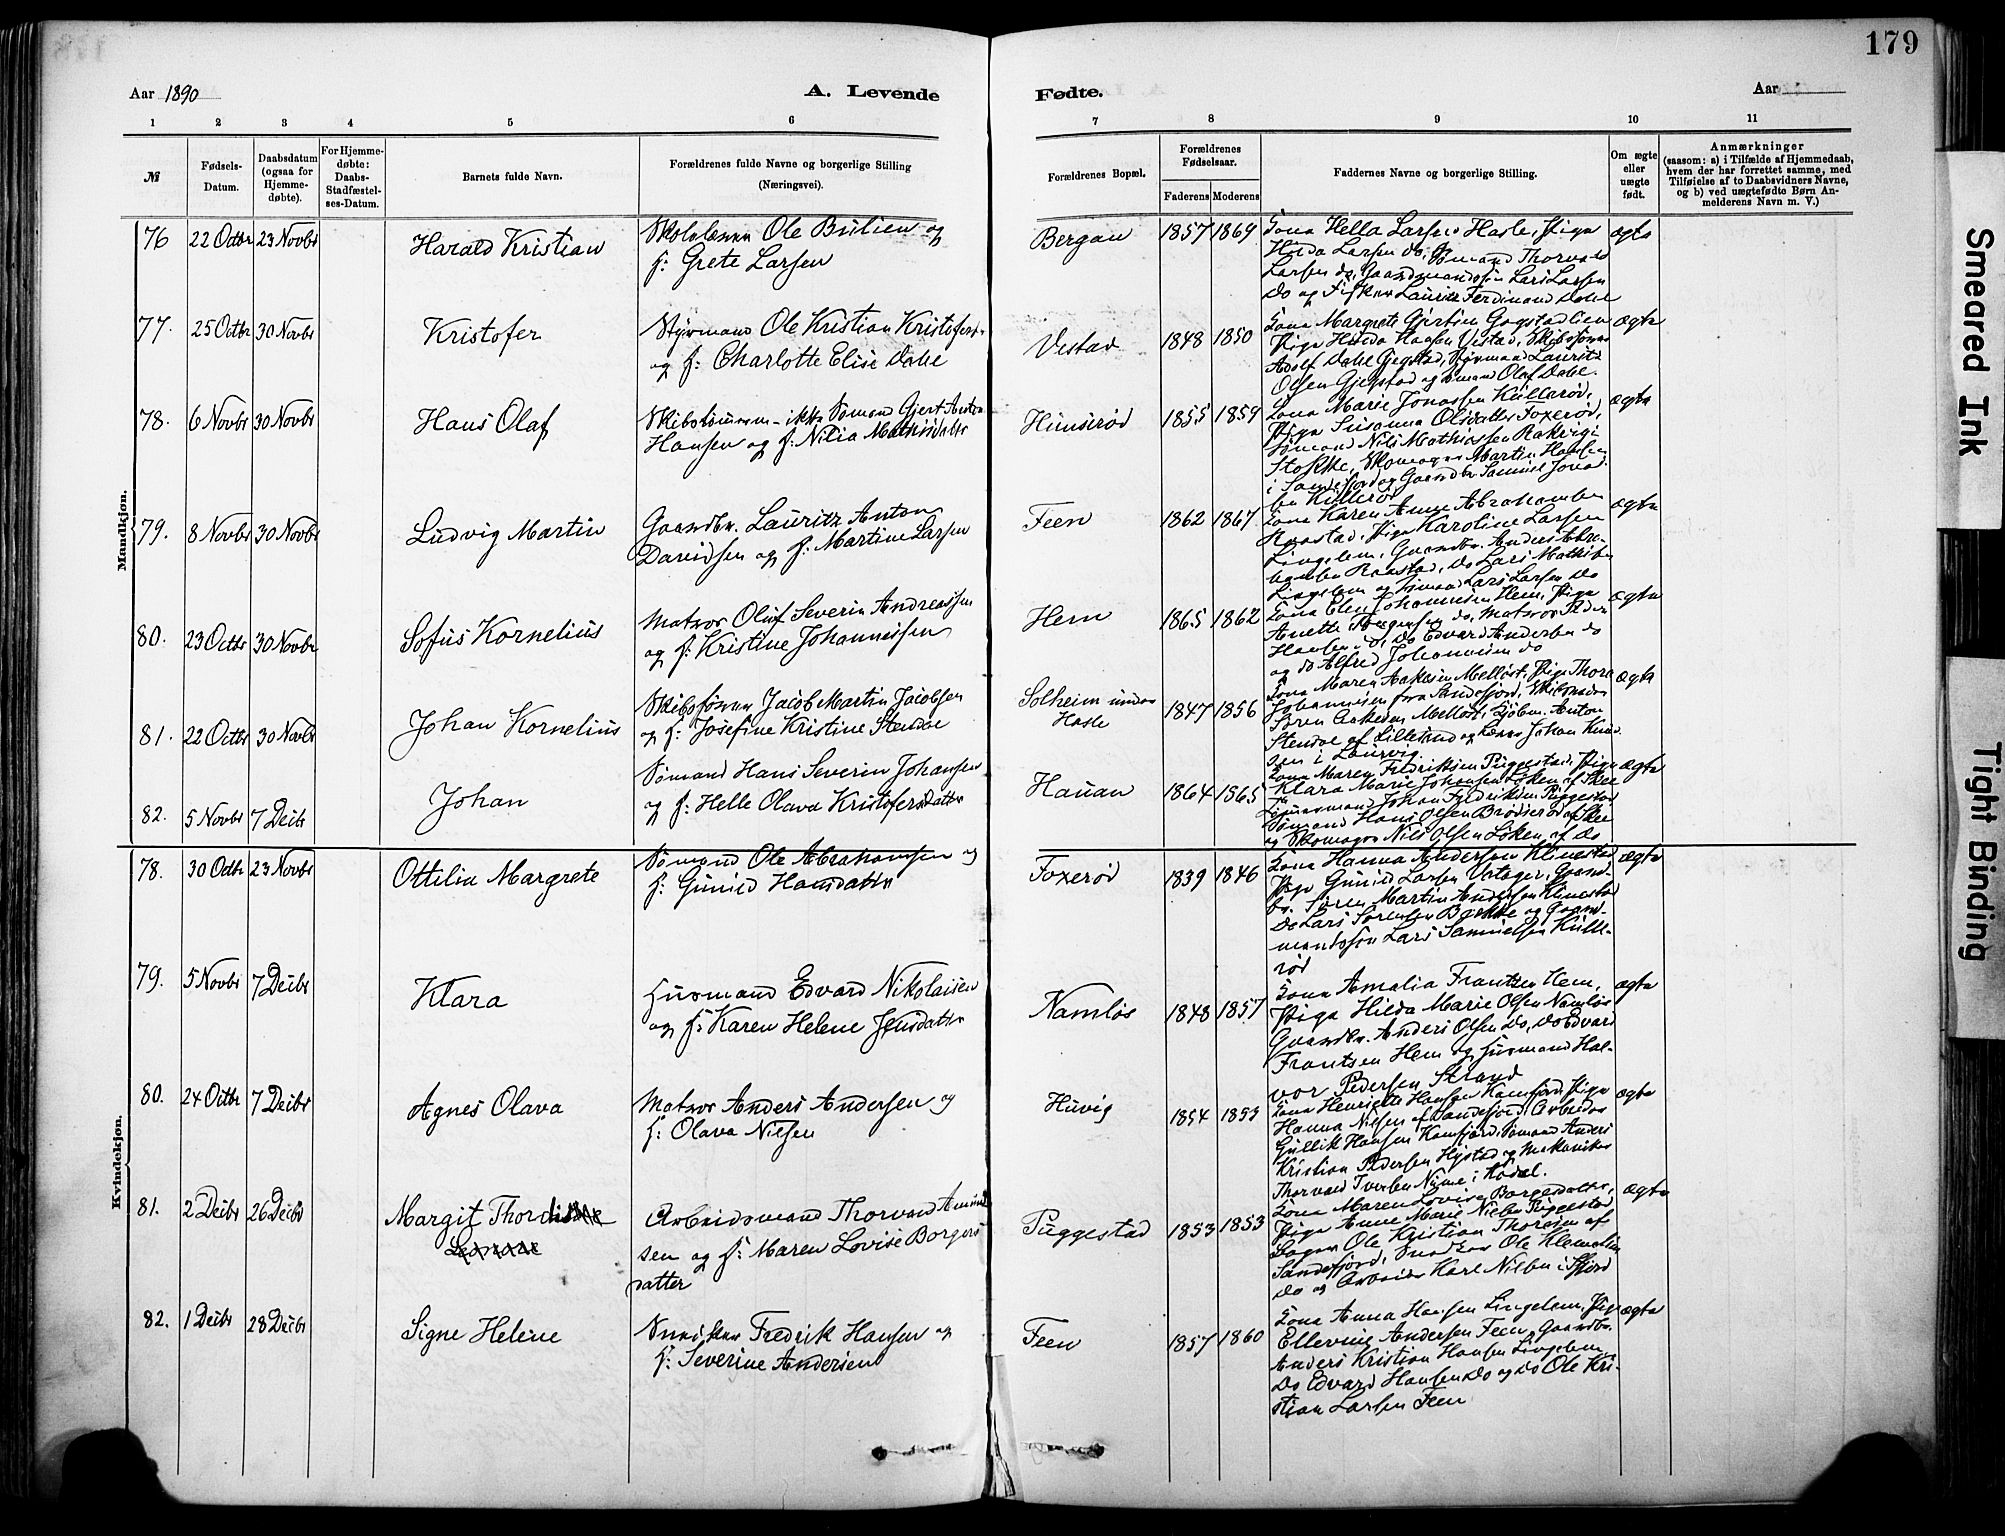 179
Aar 1890
A. Levende
Fødte.
Aar
1 2 3 4 5 6 7 8 9 10 11
№
Fødsels-
Datum.
Daabsdatum
(ogsaa for
Hjemme-
døbte).
For Hjemme-
døbte:
Daabs-
Stadfæstel-
ses-Datum.
Barnets fulde Navn.
Forældrenes fulde Navne og borgerlige Stilling
(Næringsvei).
Forældrenes Bopæl.
Forældrenes
Fødselsaar.
Faderens Moderens
Faddernes Navne og borgerlige Stilling.
Om ægte
eller
uægte
født.
Anmærkninger
(saasom: a) i Tilfælde af Hjemmedaab,
hvem der har forrettet samme, med
Tilføielse af to Daabsvidners Navne,
og b) ved uægtefødte Børn An-
melderens Navn m. V.)
Mandkjøn.
76 22 Octbr 23 Novbr Harald Kristian
Ole og
f: Grete Larsen
Bergan 1857 1869
Kona Larsen Hasle, Pige
Larsen do, Sømand Thorvald
Larsen do, Gaardmandssøn Lars Larsen
do og Fisker Lauritz Ferdinand Dahl
ægte
77. 25 Octbr 30 Novbr Kristofer
Styrmand Ole Kristian Kristofers.
og f: Charlotte Elise Dahl
Vestad 1848 1850
Kona Margrete
Pige Hansen Vestad,
Adolf Dahl Styrmand Lauritz
Olsen og Sømand Olaf Dahl.
ægte
78. 6 Novbr 30 Novbr Hans Olaf
Sømand Gjert Anton
Hansen og f: Nilia Mathisdatter
Himserød 1855 1859
Kona Marie Jonassen Küllerød,
Pige Susanna Olsdatter Foxerød,
Sømand Nils Mathiassen
Stokke, Skomager Martin Hansen
i Sandefjord og Gaardbr. Samuel Jonas-
sen Küllerød
ægte
79. 8 Novbr 30 Novbr Ludvig Martin
Gaardbr. Lauritz Anton
Davidsen og f: Martine Larsen
Feen 1862 1867
Kona Karen Anne Abrahamsen
Raastad, Pige Karoline Larsen
Lingelem, Gaardbr. Anders Abra-
hamsen Raastad, do Lars Mathisen
Lingelem og Sømand Lars Larsen do
ægte
80. 23 Octbr 30 Novbr Sofus Kornelius
Matros Oluf Severin Andreassen
og f: Kristine Johannessen
Hem 1865 1862
Kona Elen Johannesen Hem, Pige
Anette Jørgensen do, Matros Peder
Hansen do, do Edvard Andersen do
og do Alfred Johannesen do
ægte
81. 22 Octbr 30 Novbr Johan Kornelius
Skibstømrm Jacob Martin Jacobsen
og f: Josefine Kristine Stendal
Solheim under
Hasle
1847 1856
Kona Maren Melløst, Pige Thora
Johannesen fra Sandefjord,
Søren Melløst, Anton
Stendal af og Johan Knud-
sen i Laurvig
ægte
82. 5 Novbr 7 Decbr Johan
Sømand Hans Severin Johansen
og f: Helle Olava Kristofersdatter
Hauan 1864 1865
Kona Maren Fredriksen Puggestad, Pige
Klara Marie Johansen Løken af Skee
Johan Fredriksen Puggestad
Sømand Hans Olsen af Skee
og Skomager Nils Olsen Løken af do
ægte
Kvindekjøn.
78. 30 Octbr 23 Novbr Ottilia Margrete
Sømand Ole Abrahamsen og
f: Gunild Hansdatter
Foxerød 1839 1846
Kona Hanna Andersen Klinestad
Pige Gunild Larsen Gaard-
br. Søren Martin Andersen Klinestad
do Lars Sørensen Bække og Gaard-
mandssøn Lars Samuelsen Külle-
rød
ægte
79. 5 Novbr 7 Decbr Klara
Husmand Edvard Nikolaisen
og f: Karen Helene Jensdatter
Namløs 1848 1857
Kona Amalia Frantzen Hem,
Pige Hilda Marie Olsen Namløs
Gaardbr. Anders Olsen do, do Edvard
Frantsen Hem og Husmand Hal-
vor Pedersen Strand
ægte
80. 24 Octbr 7 Decbr Agnes Olava
Matros Anders Andersen og
f: Olava Nilsen
Huvig 1854 1853
Kona Henriette Hansen Kamfjord, Pige
Hanna Nilsen af Sandefjord, Arbeider
Gullik Hansen Kamfjord, Sømand Anders
Kristian Pedersen Hystad og Mekaniker
Thorvald Iversen i Kodal.
ægte
81. 2 Decbr 26 Decbr Margit Thordis
Arbeidsmand Thorvald Amund-
sen og f: Maren Lovise Borgers
datter
Puggestad 1853 1853
Kona Maren Lovise Borgesdatter,
Pige Anne Marie Nielsen Puggestad
Bager Ole Kristian Thoresen af
Sandefjord, Snedker Ole Klemetsen
do og Arbeider Karl Nilsen i Sfjord
ægte
82. 1 Decbr 28 Decbr Signe Helene
Snedker Fredrik Hansen og
f: Severine Andersen
Feen 1857 1860
Kona Anna Hansen Lingelem, Pige
Ellevine Andersen Feen, Gaardbr.
Anders Kristian Hansen Lingelem,
do Edvard Hansen do og do Ole Kri-
stian Larsen Feen
ægte
Smeared Ink
Tight Binding